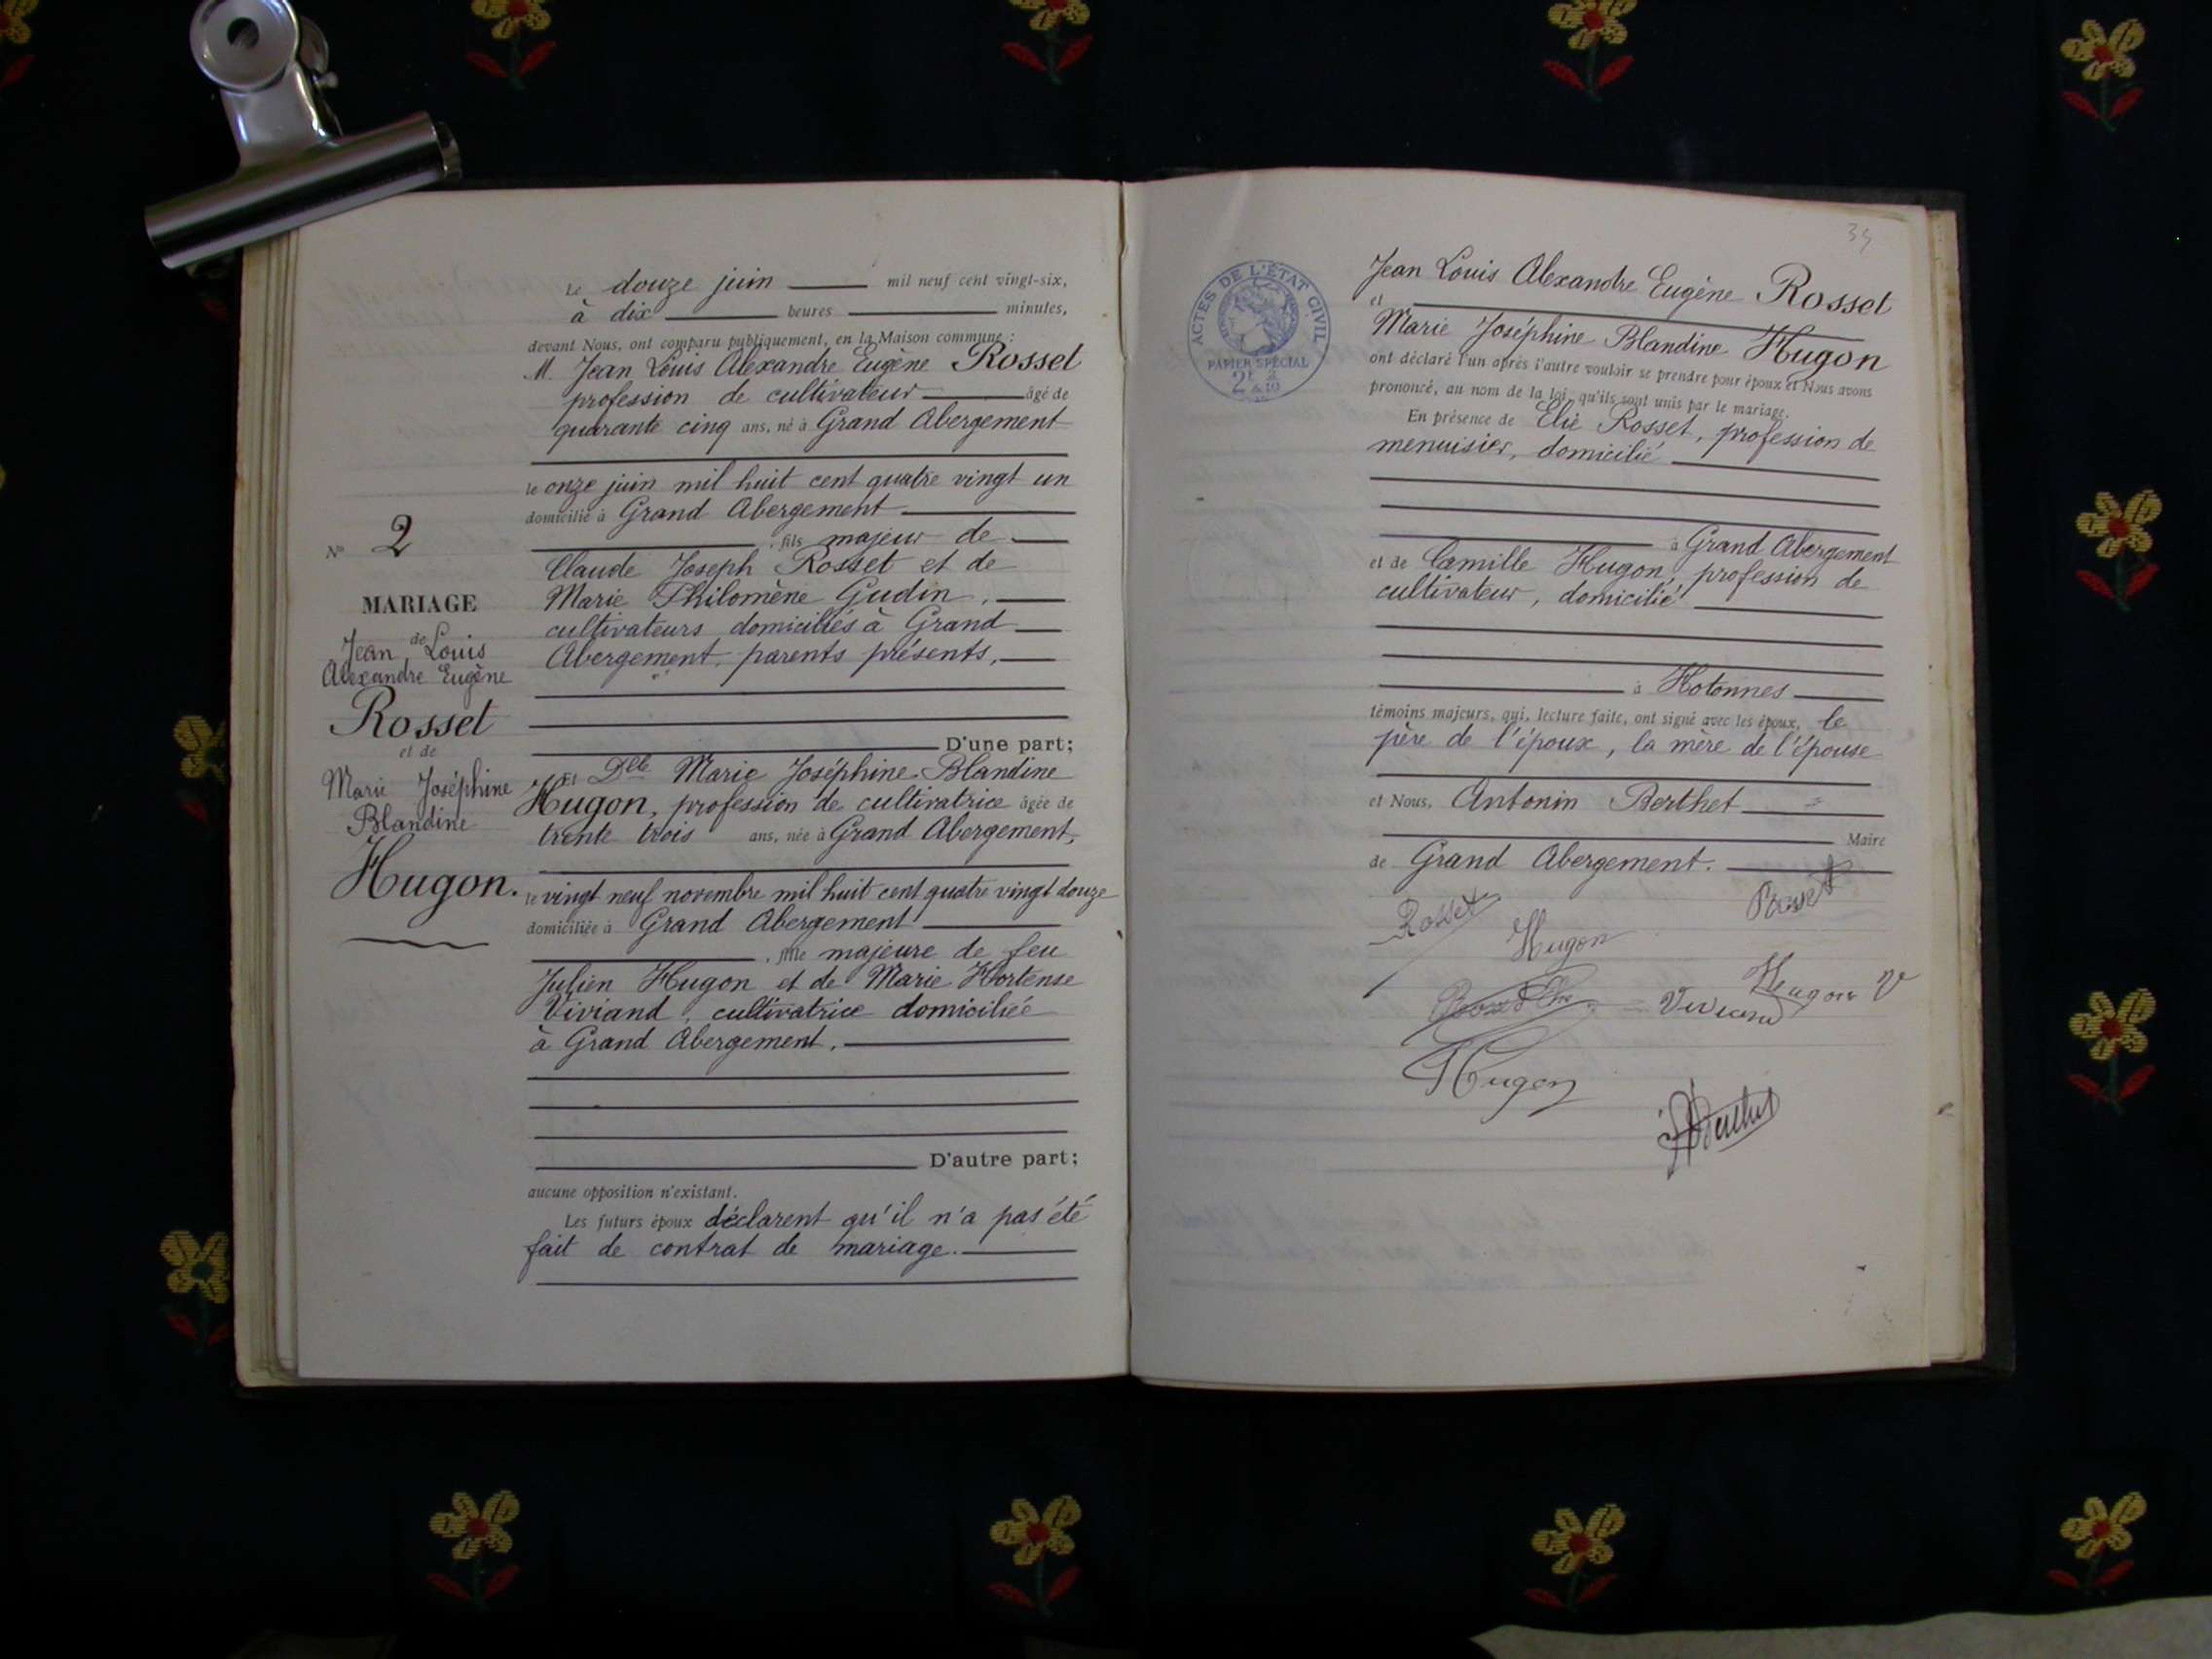 Le douze juin mil neuf cent vingt-six,
à dix heures minutes,
devant Nous, ont comparu publiquement, en la Maison commune :
M. Jean Louis Alexandre Eugène Rosset
profession de cultivateur âgé de
quarante cinq ans, né à Grand Abergement
le onze juin mil huit cent quatre vingt un
domicilié à Grand Abergement
, fils majeur de
Claude Joseph Rosset et de
Marie Philomène Gudin,
cultivateurs domiciliés à Grand
Abergement, parents présents,
D'une part;
Et Dlle Marie Joséphine Blandine
Hugon, profession de cultivatrice âgée de
trente trois ans, née à Grand Abergement,
le vingt neuf novembre mil huit cent quatre vingt douze
domiciliée à Grand Abergement
, fille majeure de feu
Julien Hugon et de Marie Hortense
Viviand, cultivatrice domiciliée
à Grand Abergement.
D'autre part;
aucune opposition n'existant.
Les futurs époux déclarent qu'il n'a pas été
fait de contrat de mariage.
N° 2
MARIAGE
de
Jean Louis
Alexandre Eugène
Rosset
et de
Marie Joséphine
Blandine
Hugon.
ACTES DE L'ÉTAT CIVIL
PAPIER SPÉCIAL
Jean Louis Alexandre Eugène Rosset
et
Marie Joséphine Blandine Hugon
ont déclaré l'un après l'autre vouloir se prendre pour époux et Nous avons
prononcé, au nom de la loi, qu'ils sont unis par le mariage.
En présence de Elie Rosset, profession de
menuisier, domicilié
à Grand Abergement
et de Camille Hugon, profession de
cultivateur, domicilié
à Hotonnes
témoins majeurs, qui, lecture faite, ont signé avec les époux, le
père de l'époux, la mère de l'épouse
et Nous, Antonin Berthet
Maire
de Grand Abergement.
Rosset
Rosset
Hugon
Hugon V
Viviand
Hugon